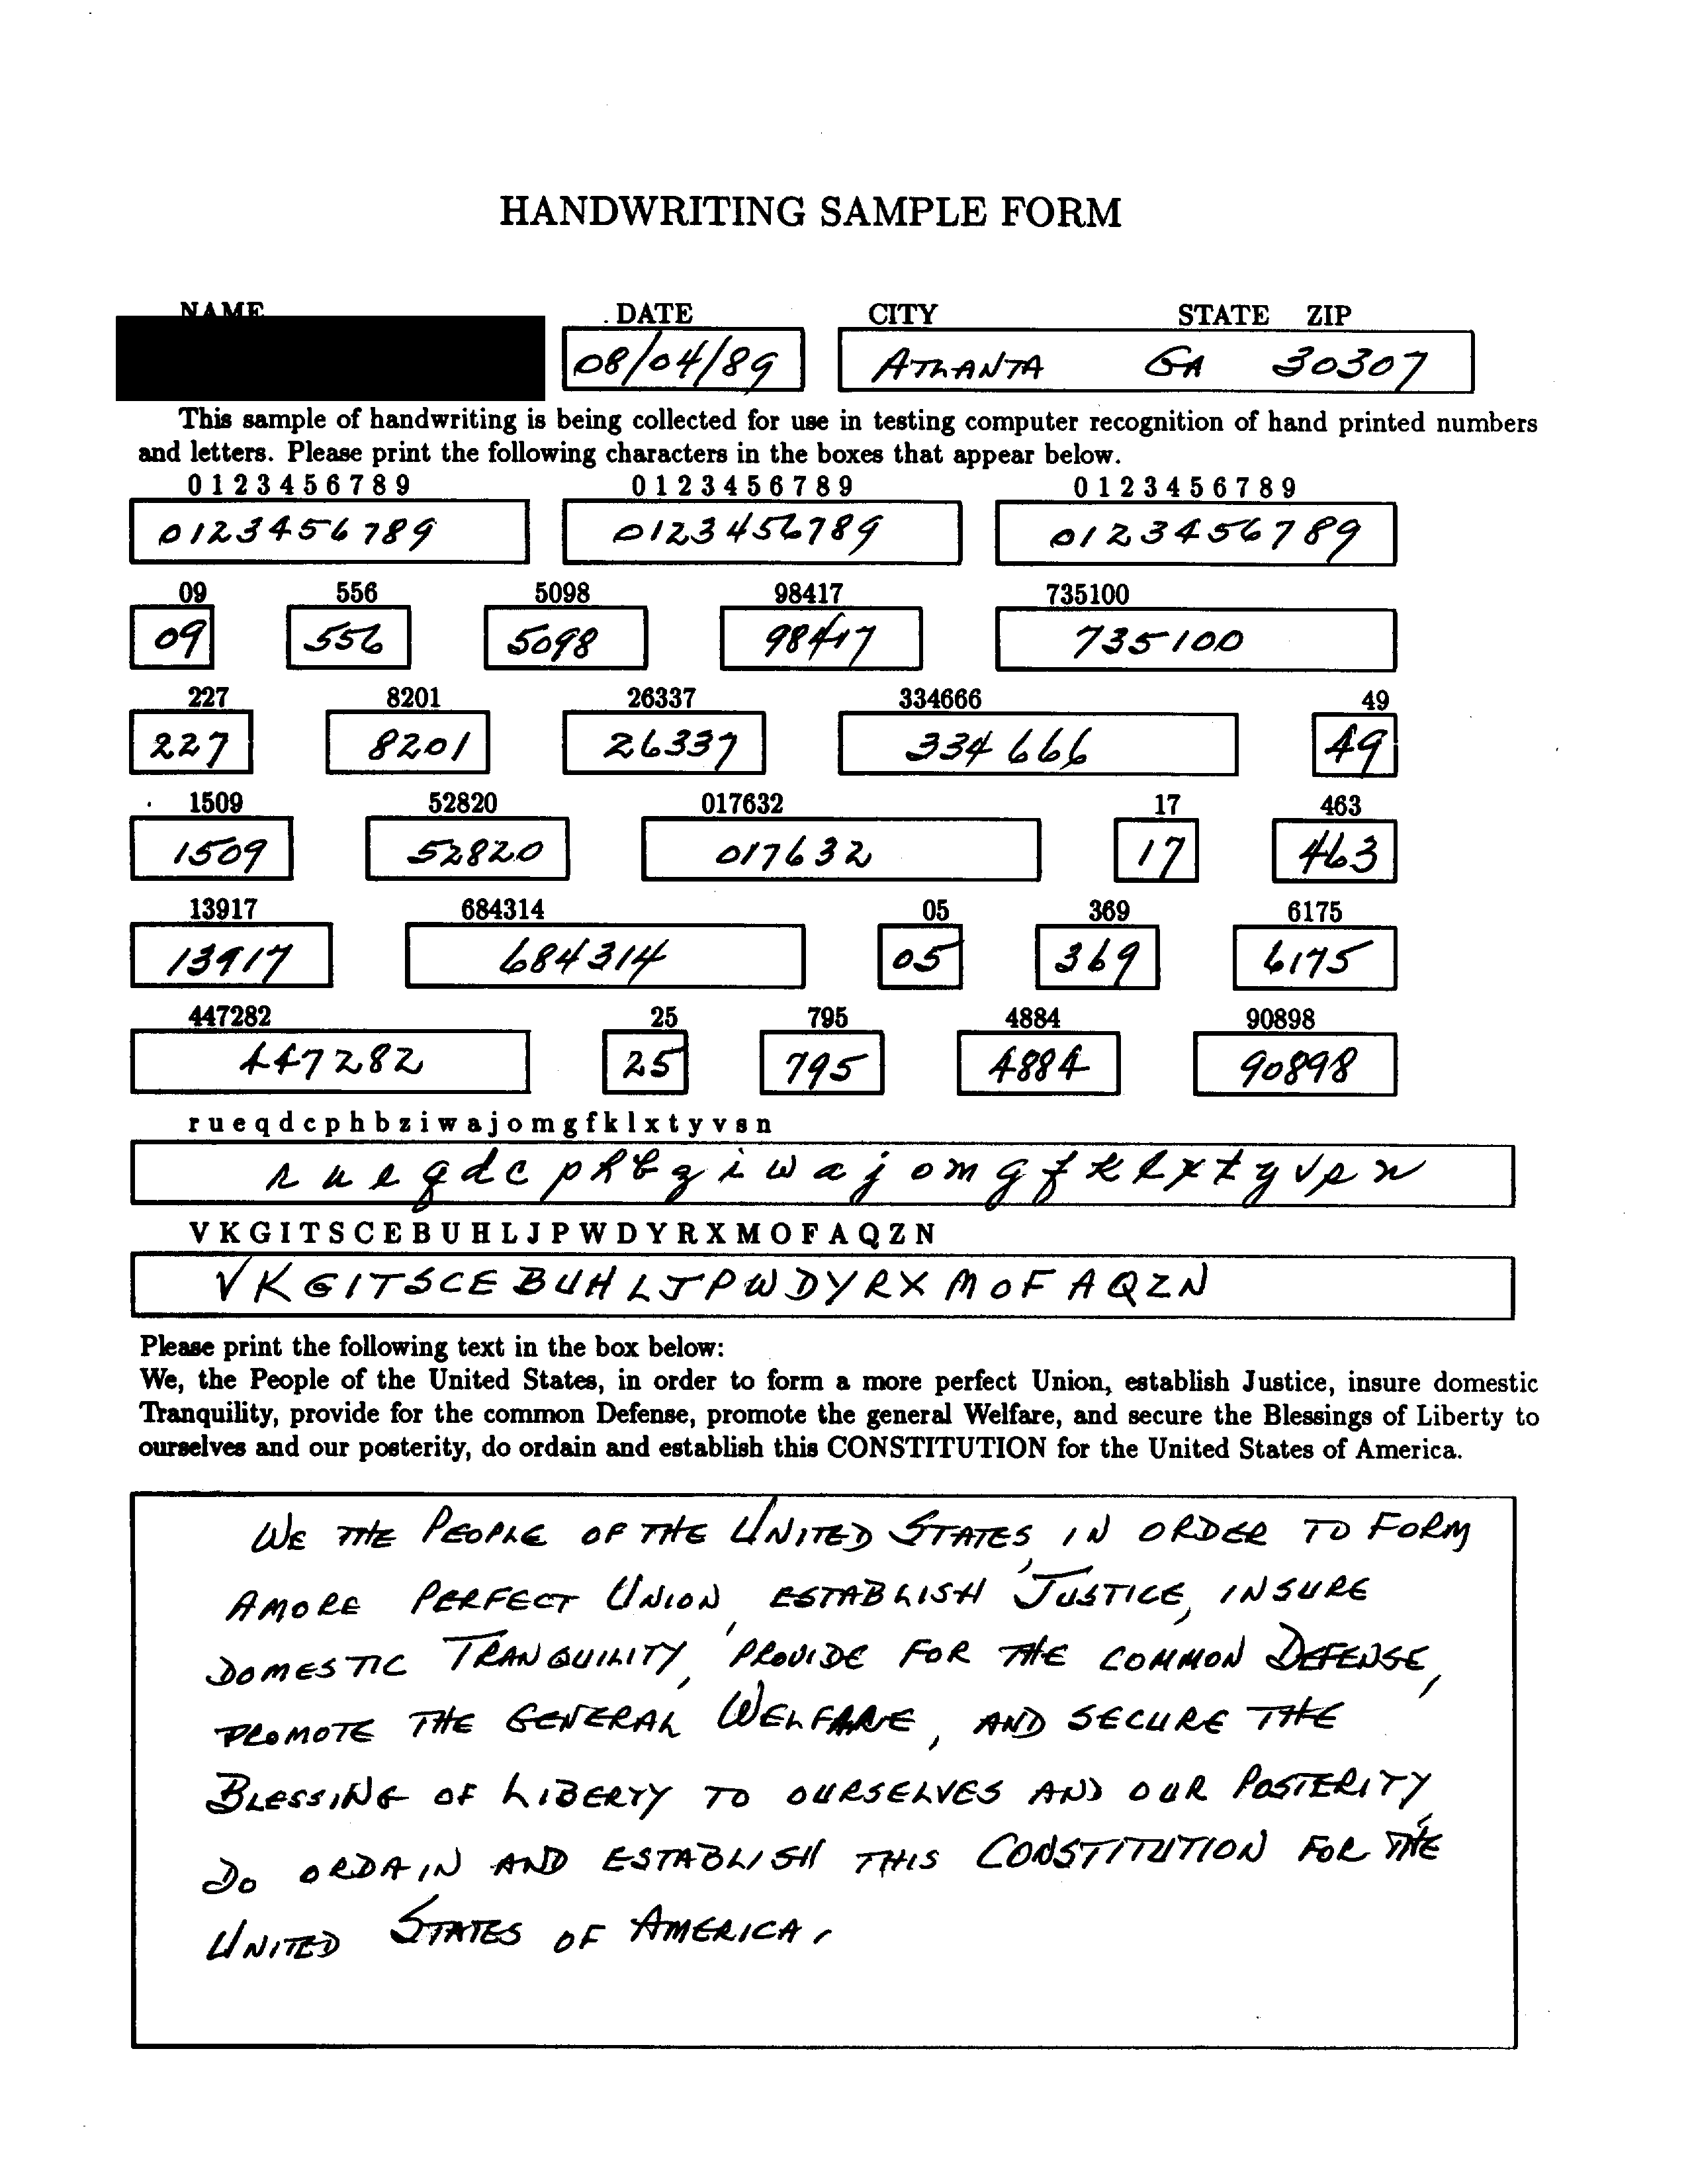 HANDWRITING SAMPLE FORM
NAME DATE CITY STATE ZIP
08/04/89 ATLANTA GA 30307
This sample of handwriting is being collected for use in testing computer recognition of hand printed numbers
and letters. Please print the following characters in the boxes that appear below.
0 1 2 3 4 5 6 7 8 9 0 1 2 3 4 5 6 7 8 9 0 1 2 3 4 5 6 7 8 9
0123456789 0123456789 0123456789
09 556 5098 98417 735100
09 556 5098 98417 735100
227 8201 26337 334666 49
227 8201 26337 334666 49
1509 52820 017632 17 463
1509 52820 017632 17 463
13917 684314 05 369 6175
13917 684314 05 369 6175
447282 25 795 4884 90898
447282 25 795 4884 90898
r u e q d c p h b z i w a j o m g f k l x t y v s n
r u e q d c p h b z i w a j o m g f k l x t y v s n
V K G I T S C E B U H L J P W D Y R X M O F A Q Z N
V K G I T S C E B U H L J P W D Y R X M O F A Q Z N
Please print the following text in the box below:
We, the People of the United States, in order to form a more perfect Union, establish Justice, insure domestic
Tranquility, provide for the common Defense, promote the general Welfare, and secure the Blessings of Liberty to
ourselves and our posterity, do ordain and establish this CONSTITUTION for the United States of America.
WE THE PEOPLE OF THE UNITED STATES, IN ORDER TO FORM
AMORE PERFECT UNION, ESTABLISH JUSTICE, INSURE
DOMESTIC TRANQUILITY, PROVIDE FOR THE COMMON DEFENSE,
PROMOTE THE GENERAL WELFARE, AND SECURE THE
BLESSING OF LIBERTY TO OURSELVES AND OUR POSTERITY,
DO ORDAIN AND ESTABLISH THIS CONSTITUTION FOR THE
UNITED STATES OF AMERICA.